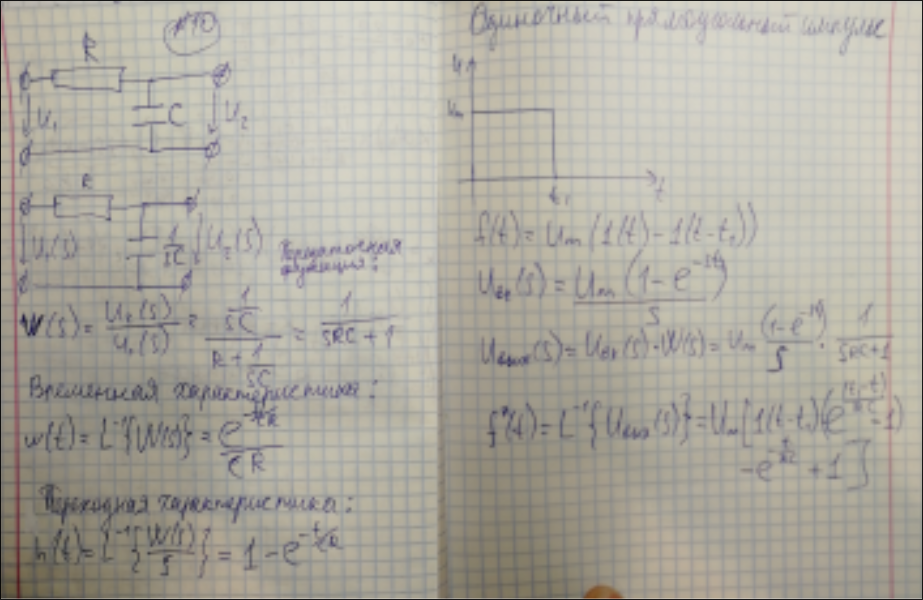 №10
R
U₁
C
U₂
R
U₁(s)
1/sC
U₂(s)
Передаточная
функция:
W(s) = U₂(s)/U₁(s) = (1/sC)/(R + 1/sC) = 1/(sRC + 1)
Временная характеристика:
w(t) = L⁻¹{W(s)} = e^(-t/CR)/CR
Переходная характеристика:
h(t) = L⁻¹{W(s)/s} = 1 - e^(-t/CR)
Одиночный прямоугольный импульс
U
Um
t₁
t
f(t) = Um (1(t) - 1(t-t₁))
Uвх(s) = Um (1 - e^(-st₁))/s
Uвых(s) = Uвх(s)·W(s) = Um (1 - e^(-st₁))/s · 1/(sRC+1)
f*(t) = L⁻¹{Uвых(s)} = Um [1(t-t₁)(e^((t₁-t)/RC) - 1)
- e^(-t/RC) + 1]